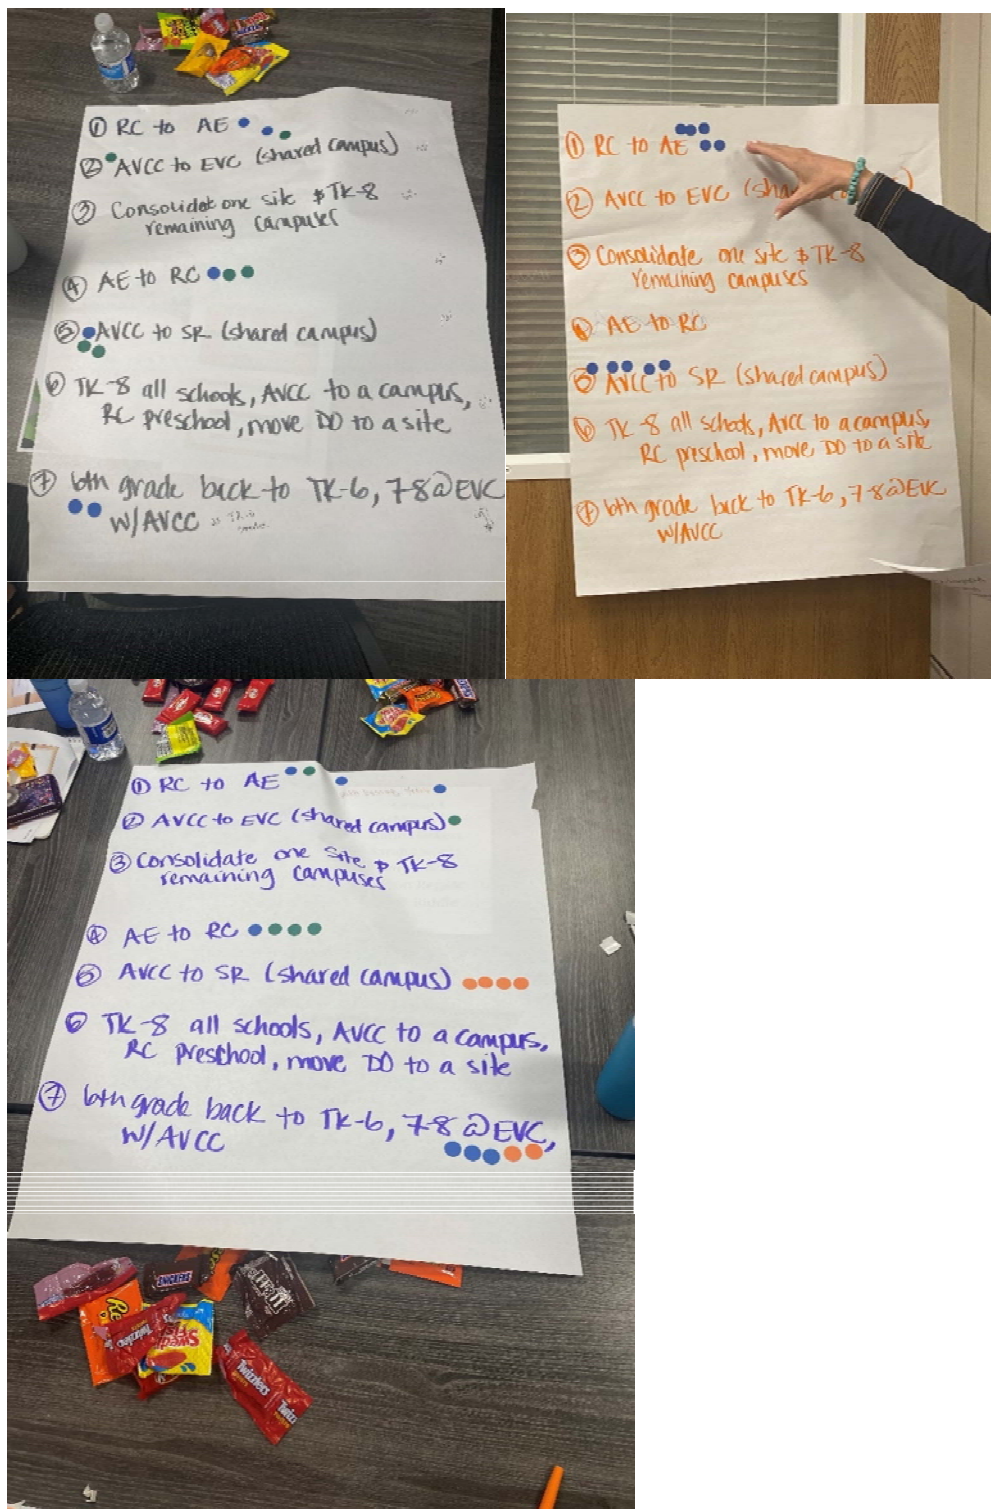 ① RC to AE
② AVCC to EVC (shared campus)
③ Consolidate one site & TK-8
remaining campuses
④ AE to RC
⑤ AVCC to SR (shared campus)
⑥ TK-8 all schools, AVCC to a campus,
RC preschool, move DO to a site
⑦ 6th grade back to TK-6, 7-8@EVC
W/AVCC
① RC to AE
② AVCC to EVC (sha
③ Consolidate one site & TK-8
remaining campuses
④ AE to RC
⑤ AVCC to SR (shared campus)
⑥ TK-8 all schools, AVCC to a campus,
RC preschool, move DO to a site
⑦ 6th grade back to TK-6, 7-8@EVC
W/AVCC
① RC to AE
② AVCC to EVC (shared campus)
③ Consolidate one site & TK-8
remaining campuses
④ AE to RC
⑤ AVCC to SR (shared campus)
⑥ TK-8 all schools, AVCC to a campus,
RC preschool, move DO to a site
⑦ 6th grade back to TK-6, 7-8@EVC,
W/AVCC
SNICKERS
m&m's
Twizzlers
Twizzlers